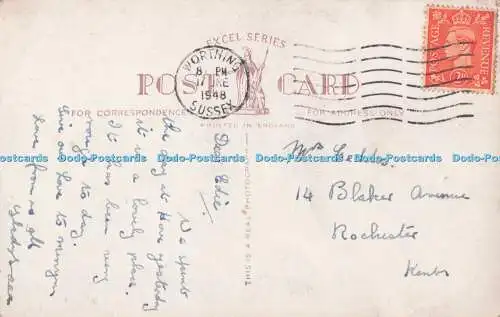 EXCEL SERIES
POST CARD
FOR CORRESPONDENCE
FOR ADDRESS ONLY
PRINTED IN ENGLAND
THIS IS A REAL PHOTOGRAPH
WORTHING
8 PM
17 JNE
1948
SUSSEX
POSTAGE
REVENUE
Dear Edie,
We spent
the day at Hove yesterday
it is a lovely place.
It has been very
rough to day.
Give our love to
Love from us all
Mrs
14 Blaker Avenue
Rochester
Kent
Dodo-Postcards Dodo-Postcards Dodo-Postcards Dodo-Postcards Dodo-Postcards Dodo-Postcards